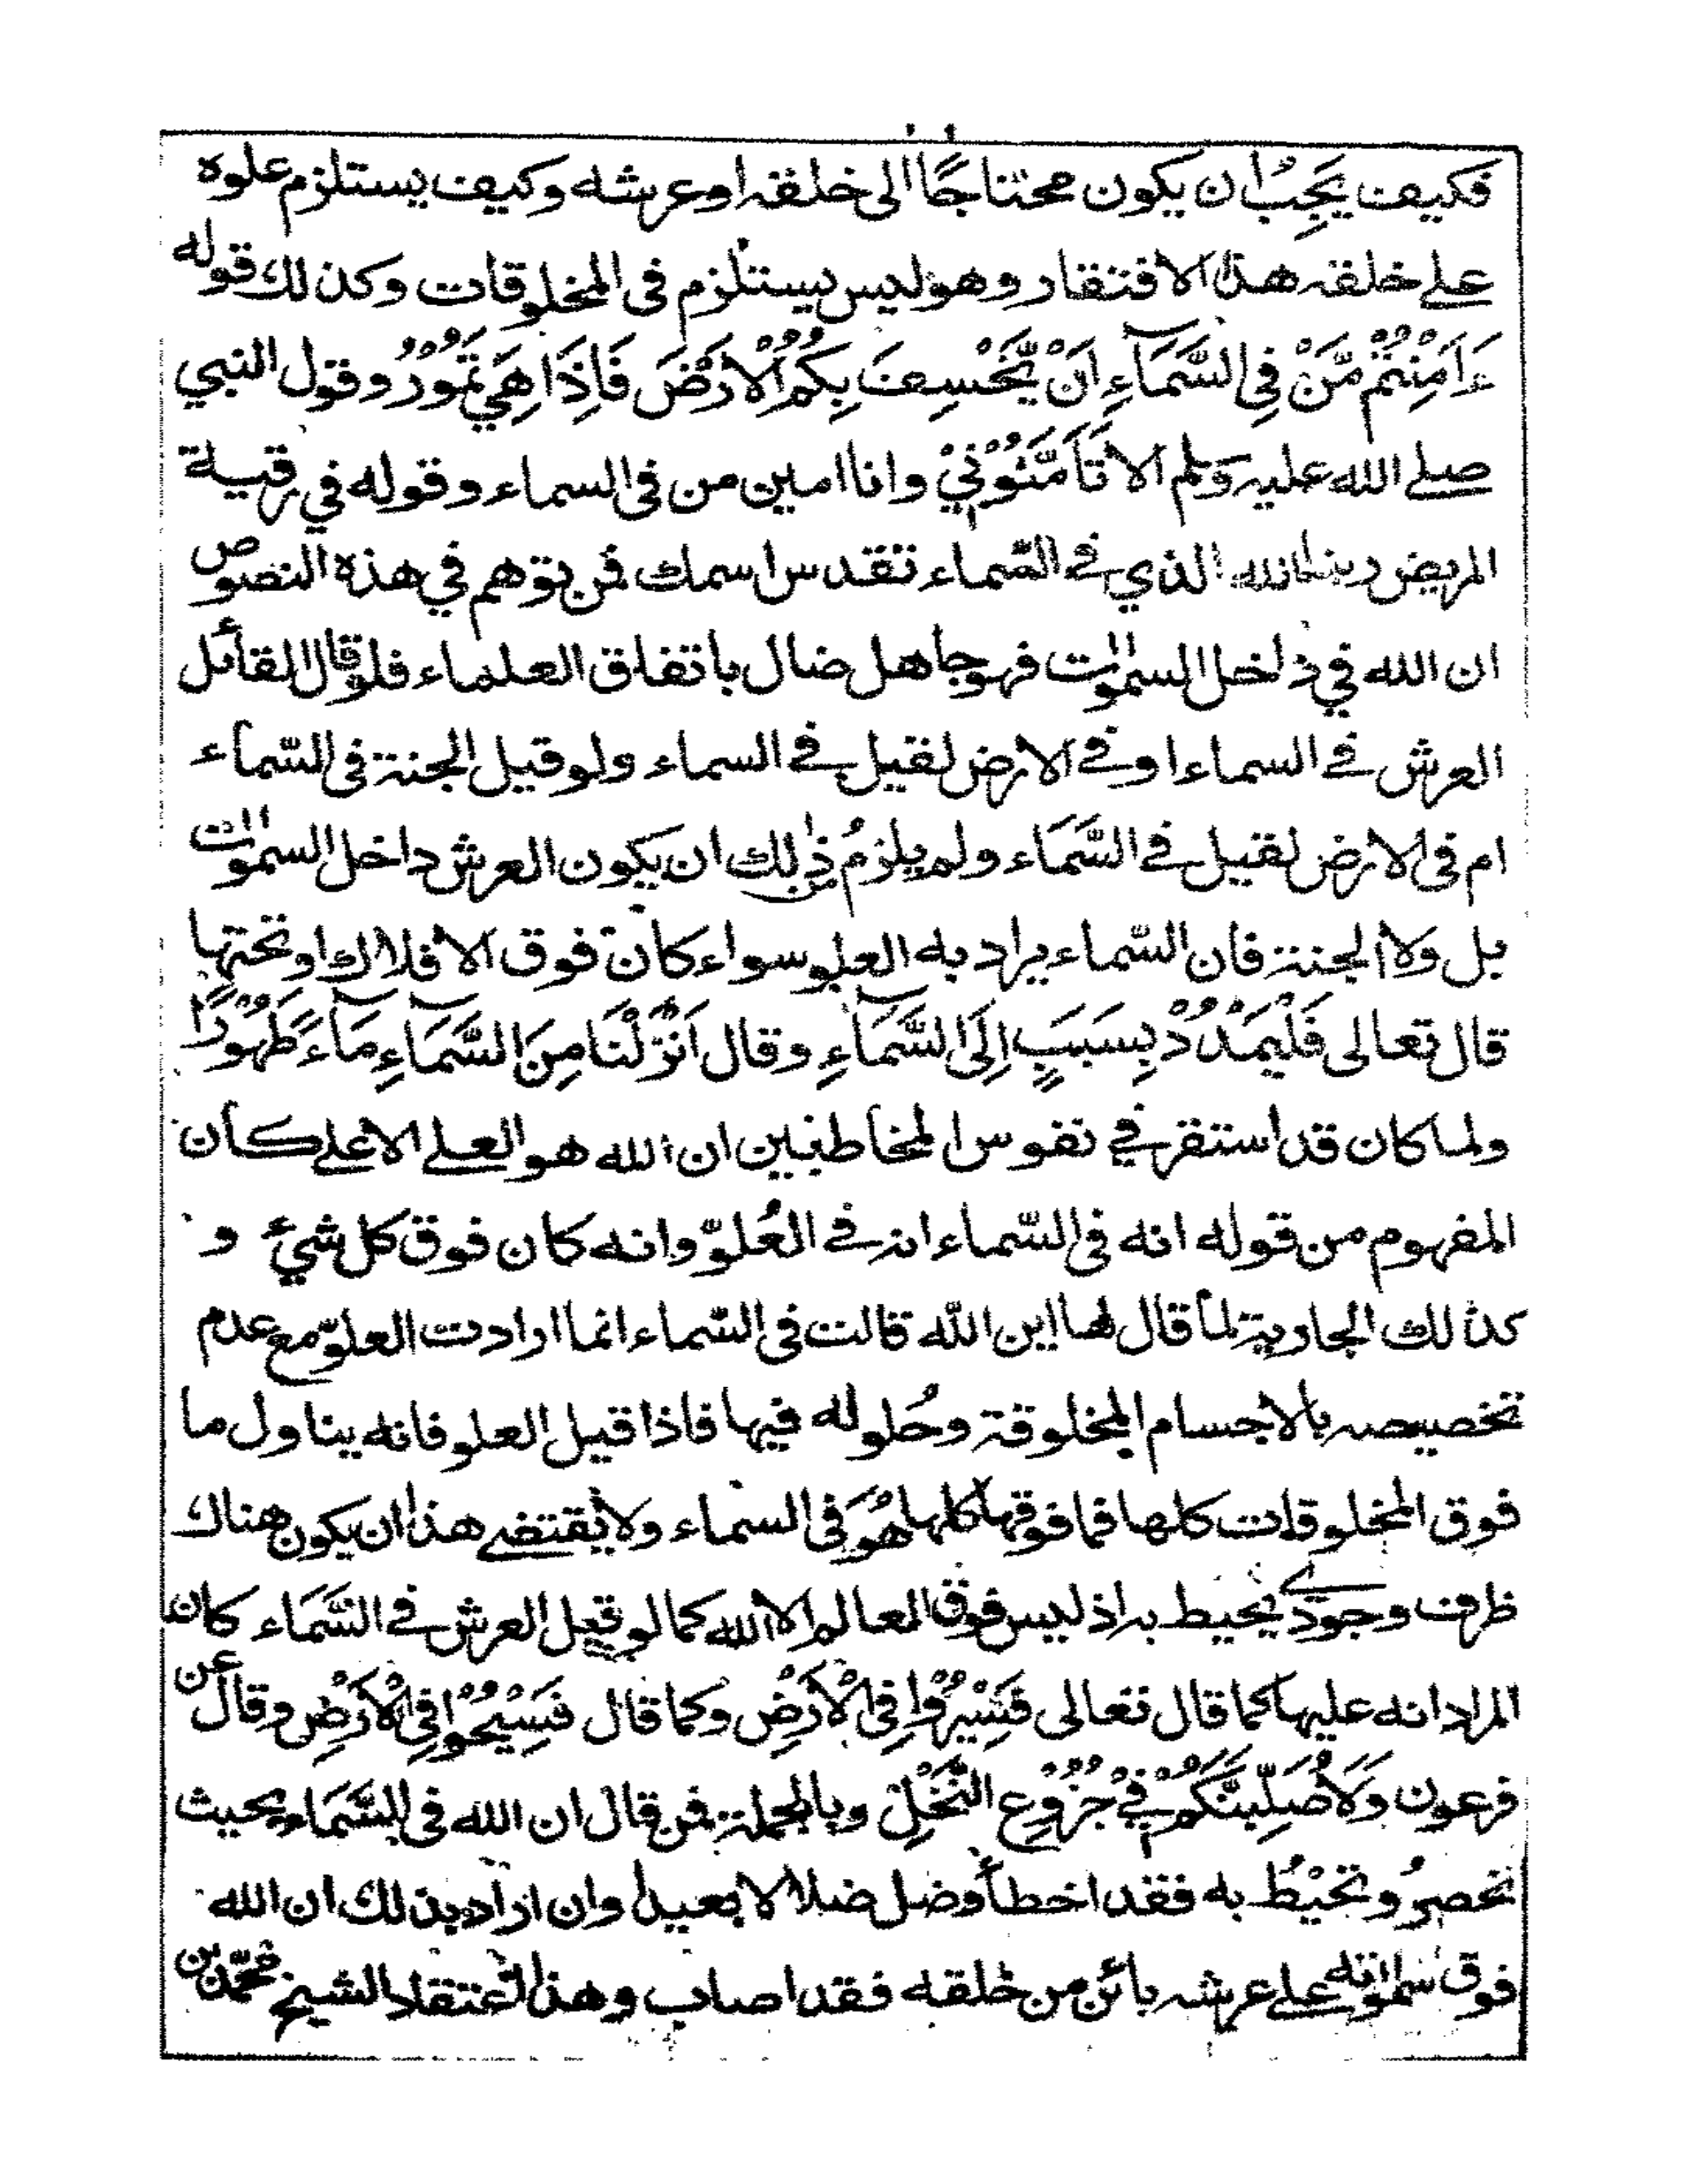 فكيف يَجِبُ ان يكون محتاجًا الى خلقه او عرشه وكيف يستلزم علوه
على خلقه هذا الافتقار وهو ليس يستلزم فى المخلوقات وكذلك قوله
ءَاَمِنْتُمْ مَّنْ فِى السَّمَآءِ اَنْ يَّخْسِفَ بِكُمُ الْاَرْضَ فَاِذَا هِيَ تَمُوْرُ وقول النبي
صلى الله عليه وَسلم الا تَأمَنُوْنِيْ وانا امين من فى السماء وقوله في رقية
المريض ربنا الله الذي في السّماء تقدس اسمك فمن توهم في هذه النصوص
ان الله في داخل السموٰت فهو جاهل ضال باتفاق العلماء فلو قال القائل
العرش في السماء او في الارض لقيل في السماء ولو قيل الجنة فى السّماء
ام فى الارض لقيل في السَّمَاء ولم يلزم من ذٰلك ان يكون العرش داخل السموٰت
بل ولا الجنة فان السّماء يراد به العلو سواء كان فوق الافلاك او تحتها
قال تعالى فَلْيَمْدُدْ بِسَبَبٍ اِلَى السَّمَآءِ وقال اَنْزَلْنَا مِنَ السَّمَآءِ مَآءً طَهُوْرًا
ولما كان قد استقر في نفوس المخاطبين ان الله هو العلى الاعلى كان
المفهوم من قوله انه فى السّماء انه في العُلوّ وانه كان فوق كل شيء و
كذلك الجارية لما قال لها اين اللّه قالت فى السّماء انما ارادت العلوّ مع عدم
تخصيصه بالاجسام المخلوقة وحُلوله فيها فاذا قيل العلو فانه يتناول ما
فوق المخلوقات كلها فما فوقها كلها هُوَ فى السماء ولا يقتضى هذا ان يكون هناك
ظرف وجودي يحيط به اذ ليس فوق العالم الا الله كما لو قيل العرش في السَّمَاء كان
المراد انه عليها كما قال تعالى فَسِيْرُوْا فِى الْاَرْضِ وكما قال فَسِيْحُوْا فِى الْاَرْضِ وقال عن
فرعون وَلَاُصَلِّبَنَّكُمْ فِيْ جُزُوْعِ النَّخْلِ وبالجملة فمن قال ان الله فى السَّمَاء بحيث
تحصرُ وتحيْطُ به فقد اخطأ وضل ضلالا بعيدا وان اراد بذلك ان الله
فوق سمٰوٰته على عرشه بائن من خلقه فقد اصاب وهذا اعتقاد الشيخ محمّد بن